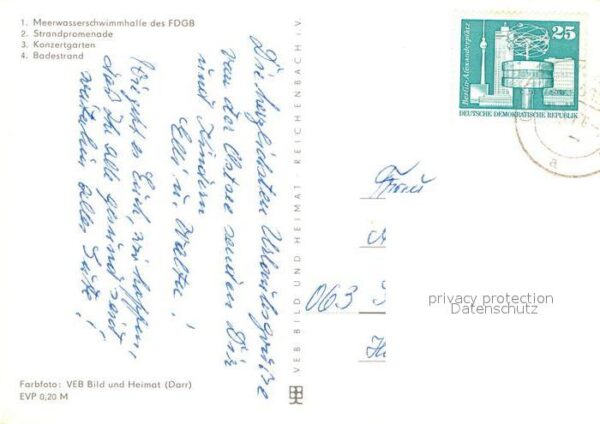 1. Meerwasserschwimmhalle des FDGB
2. Strandpromenade
3. Konzertgarten
4. Badestrand
Die herzlichsten Urlaubsgrüße
von der Ostsee senden Dir
und Kindern
Elli u. Walter!
Wie geht es Euch, wir hoffen,
daß Ihr alle gesund seid
weiterhin alles Gute!
Farbfoto: VEB Bild und Heimat (Darr)
EVP 0,20 M
VEB BILD UND HEIMAT · REICHENBACH i. V.
Berlin-Alexanderplatz
25
DEUTSCHE DEMOKRATISCHE REPUBLIK
a
Frau
063
privacy protection
Datenschutz